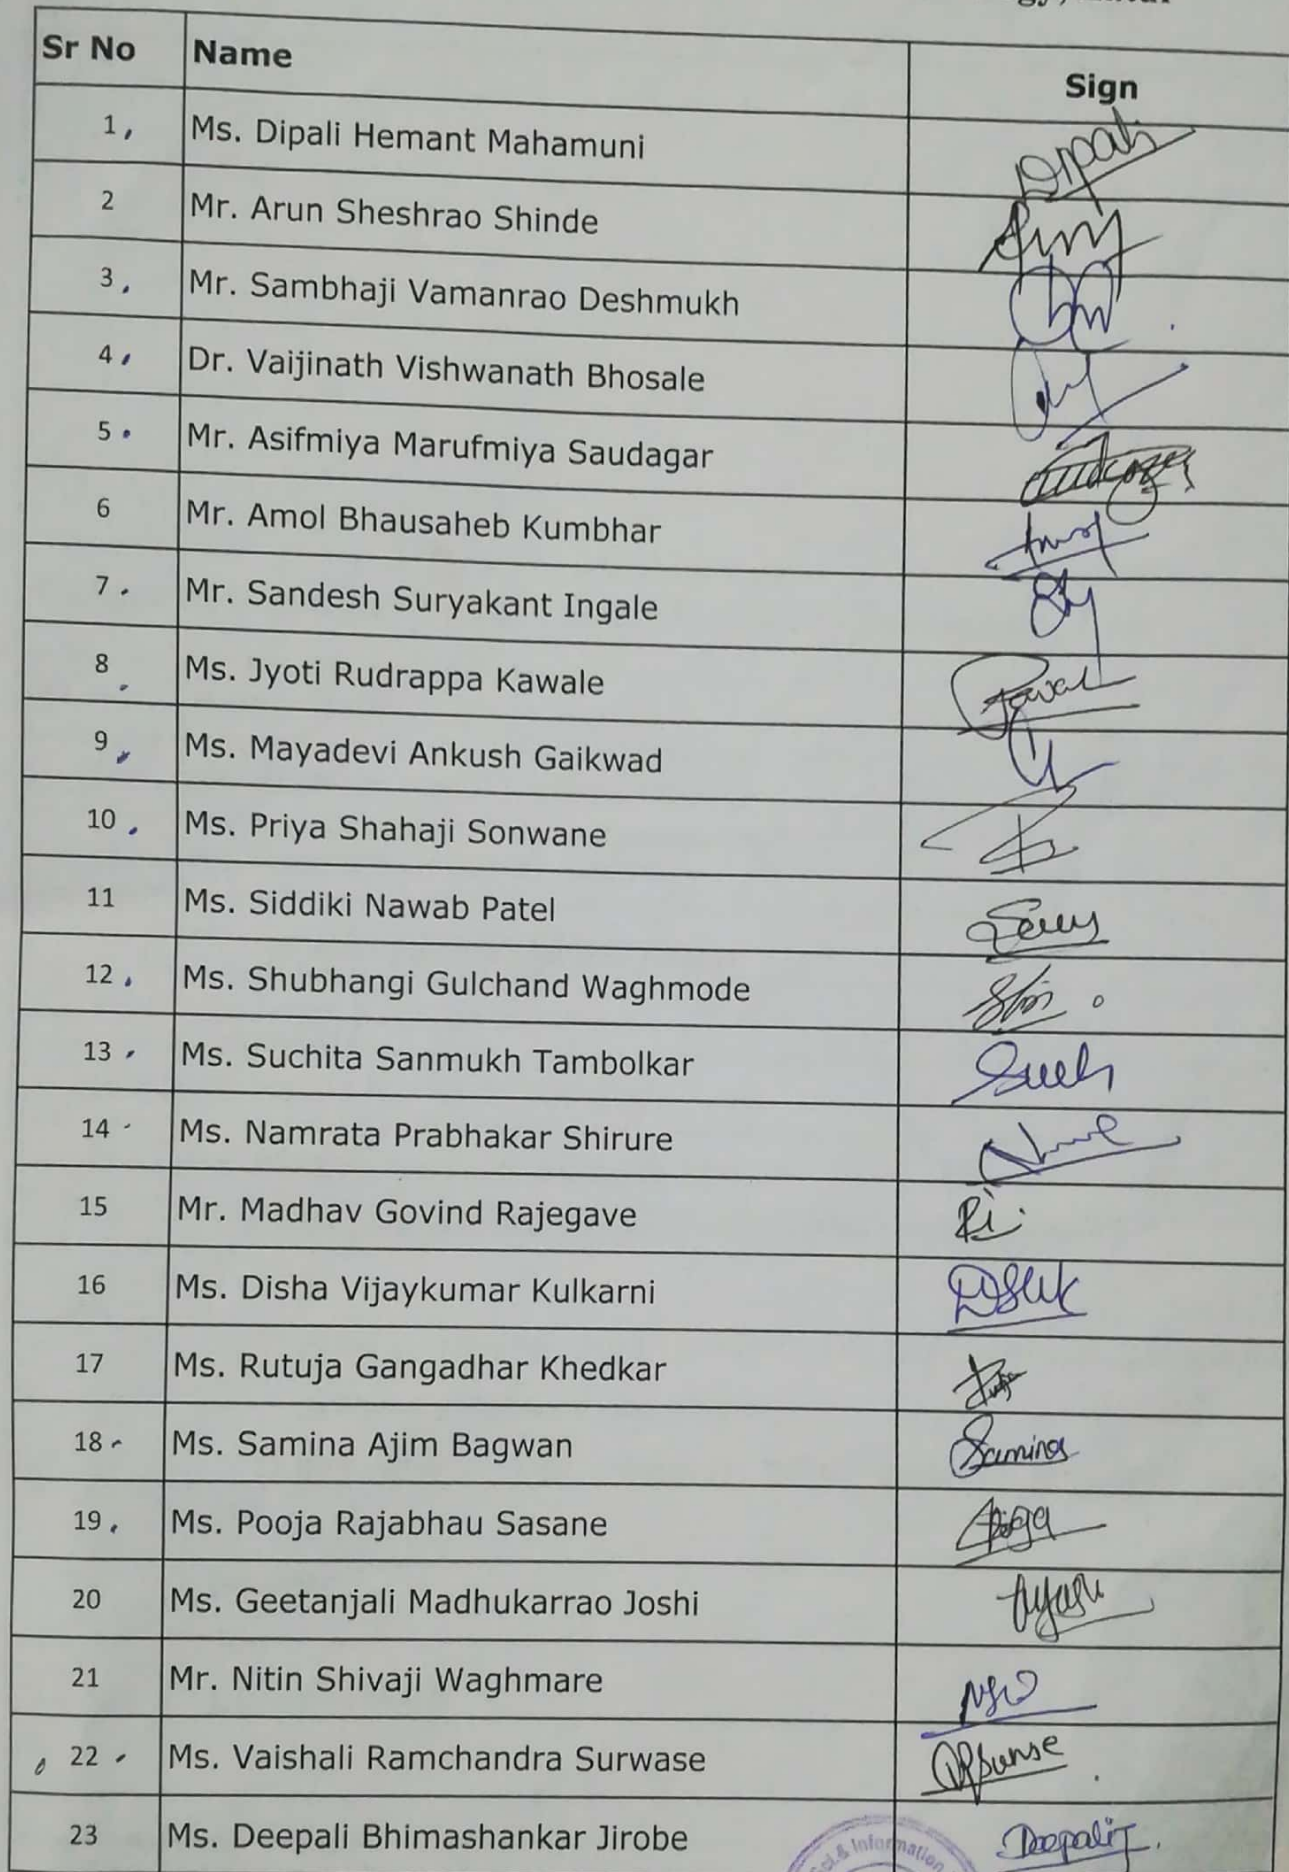 Sr No Name Sign
1, Ms. Dipali Hemant Mahamuni Dipali
2 Mr. Arun Sheshrao Shinde
3, Mr. Sambhaji Vamanrao Deshmukh
4, Dr. Vaijinath Vishwanath Bhosale
5. Mr. Asifmiya Marufmiya Saudagar
6 Mr. Amol Bhausaheb Kumbhar
7. Mr. Sandesh Suryakant Ingale
8 Ms. Jyoti Rudrappa Kawale
9, Ms. Mayadevi Ankush Gaikwad
10, Ms. Priya Shahaji Sonwane
11 Ms. Siddiki Nawab Patel
12, Ms. Shubhangi Gulchand Waghmode
13, Ms. Suchita Sanmukh Tambolkar
14 Ms. Namrata Prabhakar Shirure
15 Mr. Madhav Govind Rajegave
16 Ms. Disha Vijaykumar Kulkarni
17 Ms. Rutuja Gangadhar Khedkar
18 Ms. Samina Ajim Bagwan Samina
19, Ms. Pooja Rajabhau Sasane
20 Ms. Geetanjali Madhukarrao Joshi
21 Mr. Nitin Shivaji Waghmare
22 Ms. Vaishali Ramchandra Surwase
23 Ms. Deepali Bhimashankar Jirobe Deepali
& Information